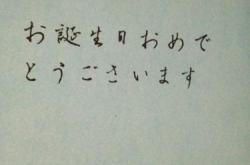 お誕生日おめで
とうございます